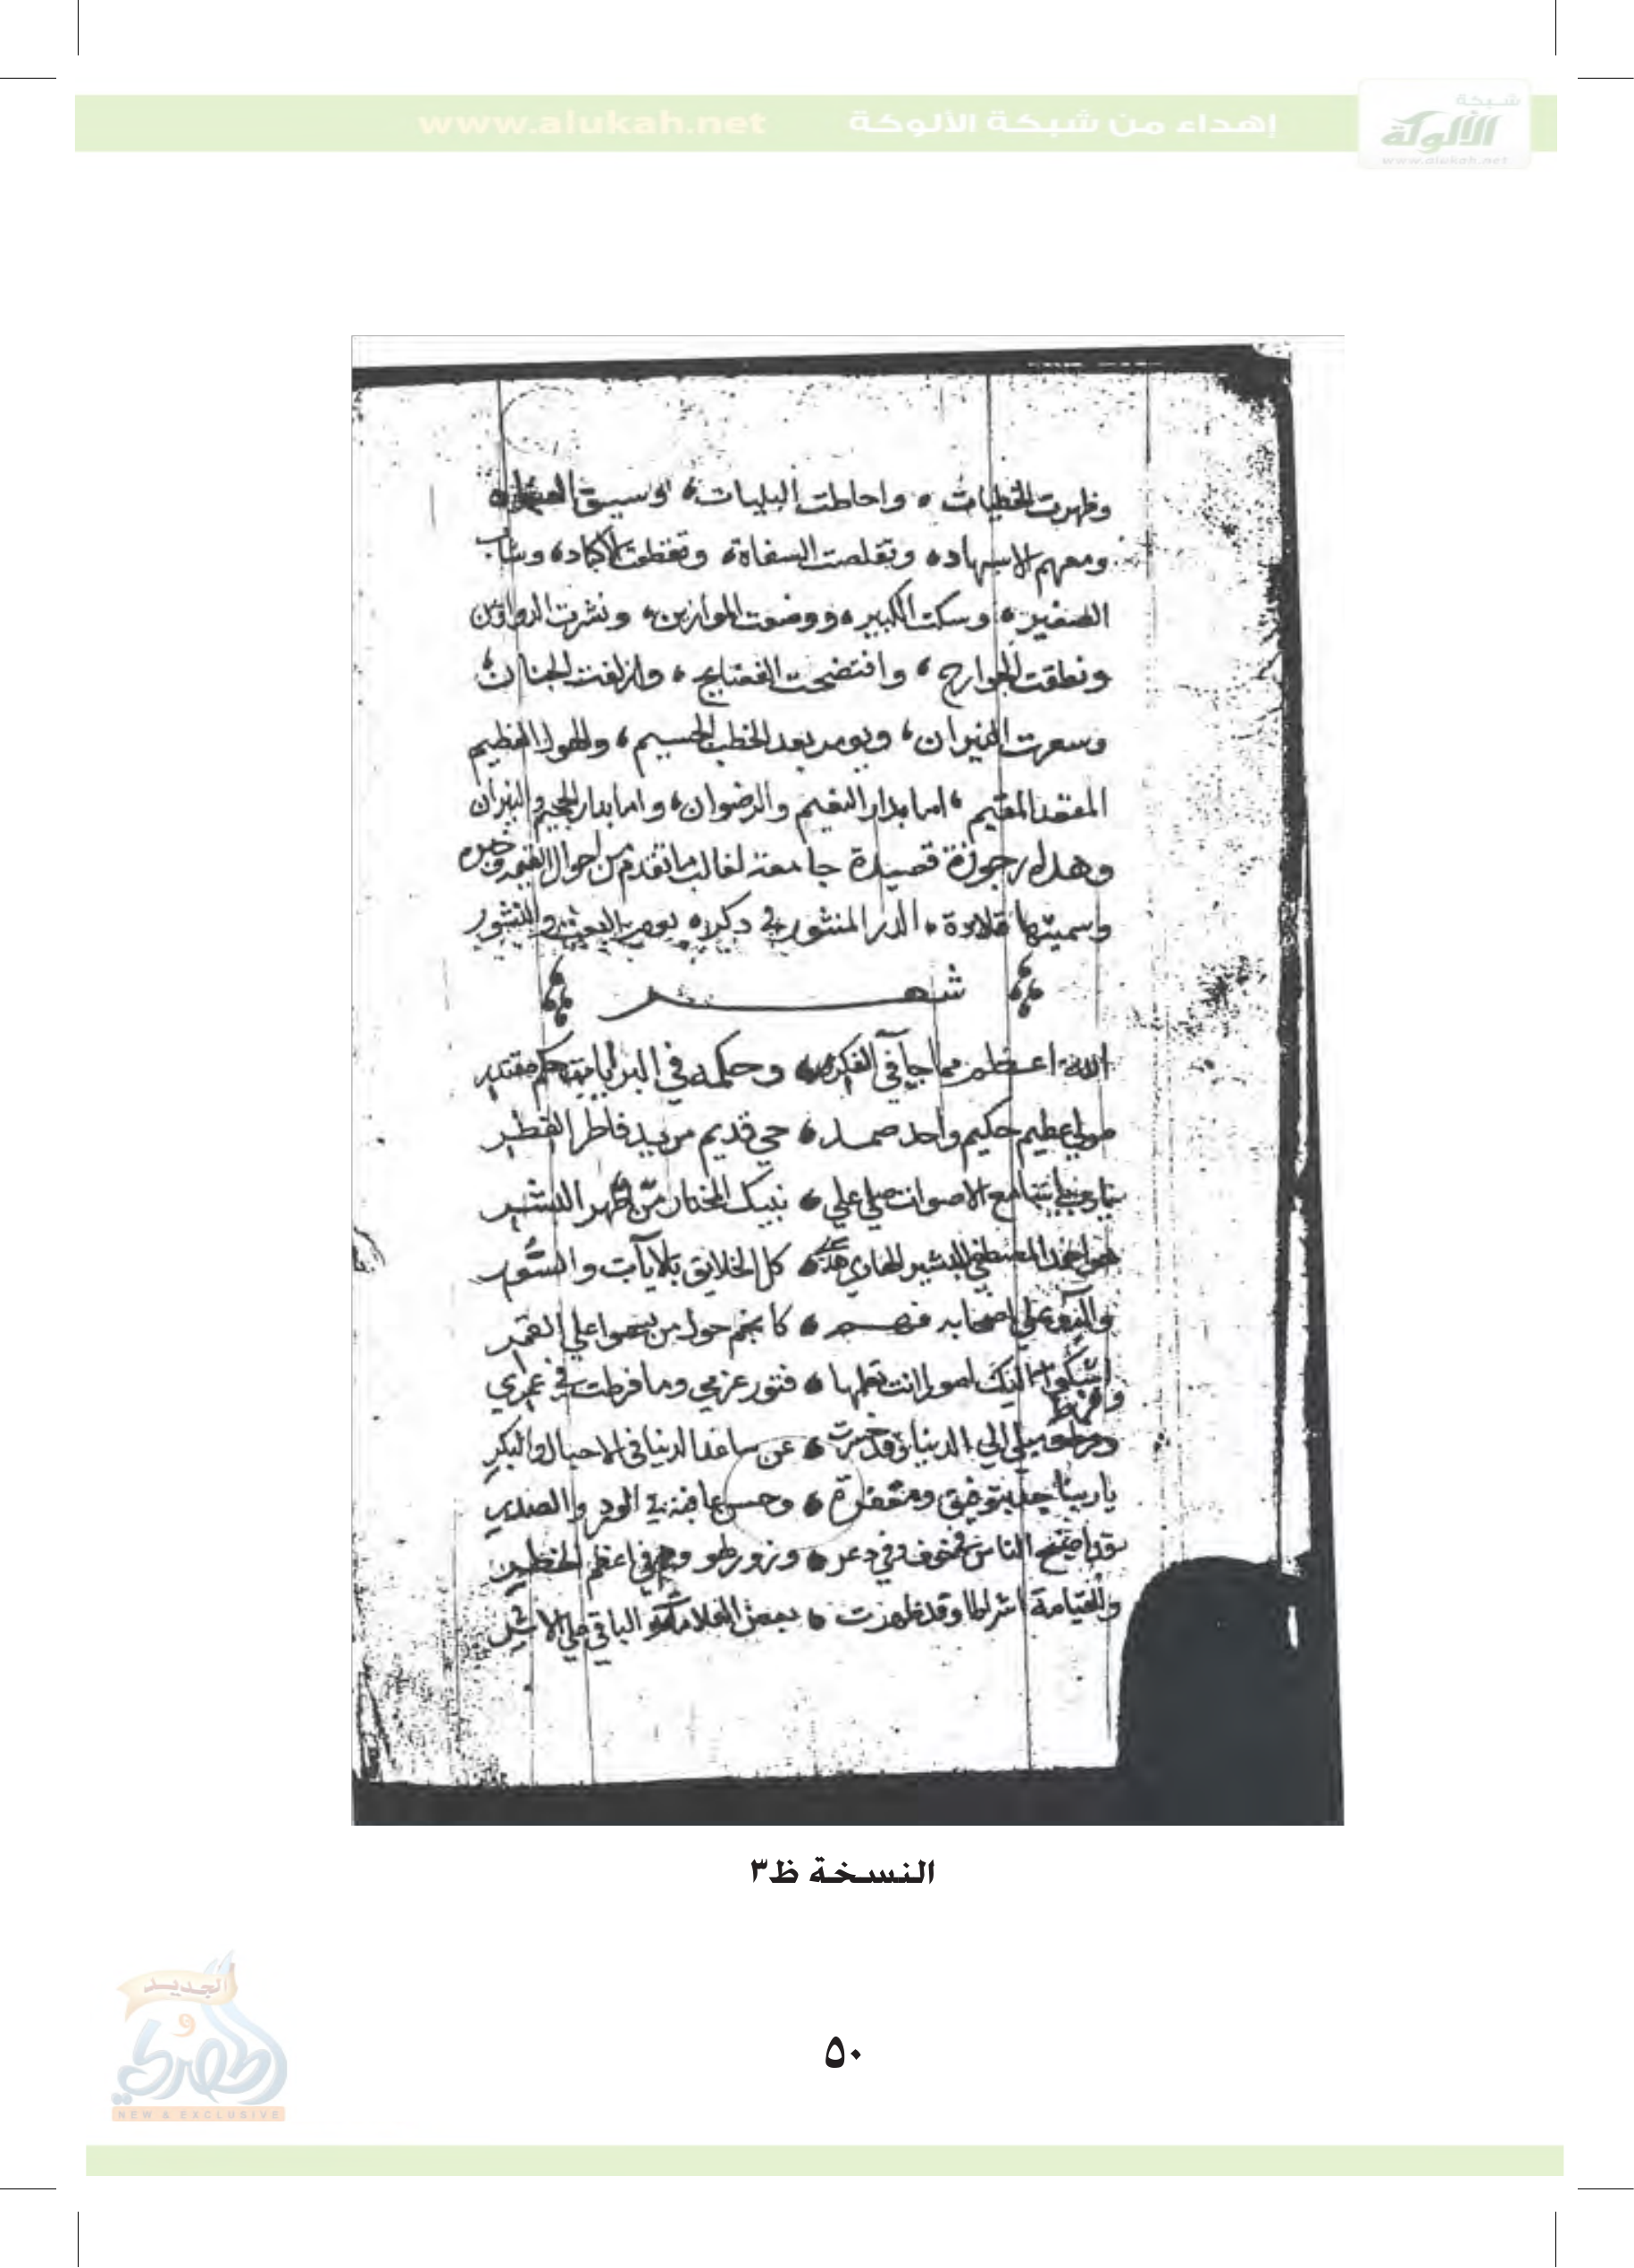 شبكة
الألوكة
www.alukah.net
إهداء من شبكة الألوكة www.alukah.net
وظهرت الخطيات واحاطت البليات وسيق
ومعهم الاشهاد وتقلصت الشفاة وتفظعت الاكباد وشاب
الصغير وسكت الكبير ووضعت الموازين ونشرت الدواوين
ونطقت الجوارح وافتضحت الفضايح وازلفت الجنان
وسعرت النيران ويومر بعد الخطب الجسيم والهول العظيم
المقعد المقيم اما بدار النعيم والرضوان واما بدار الجحيم والنيران
وهذه ارجوزة قصيدة جامعة لغالب ما تقدم من احوال القيمة
وسميتها قلادة الدر المنثور في ذكره يوم البعث والنشور
شعر
الله اعظم مما جا في الفكر وحكمه في البرايا حكم مقتدر
مولي عظيم حكيم واحد صمد حي قديم مريد فاطر الفطر
يا رب يا سامع الاصوات صلي علي نبيك المختار من اطهر البشر
هو احمد المصطفي البشير الهادي كل الخلايق بالآيات والسور
واله وعلي اصحابه فهم كانجم حول من يسموا علي القمر
اشكوا اليك امورا انت تعلمها فتور عزمي وما فرطت في عمري
وفرط
ميلي الي الدنيا وقد حسرت عن ساعد الدنيا في الاصال والبكر
يا ربنا جد بتوفيق ومغفرة وحسن عاقبة في الورد والصدر
قد اصبح الناس في خوف وفي ذعر وزور لهو وهم في اعظم الخطر
وللقيامة اشراط وقد ظهرت بعض العلامة والباقي علي الاثر
النسخة ظ٣
الجديد
و
المصري
NEW & EXCLUSIVE
٥٠